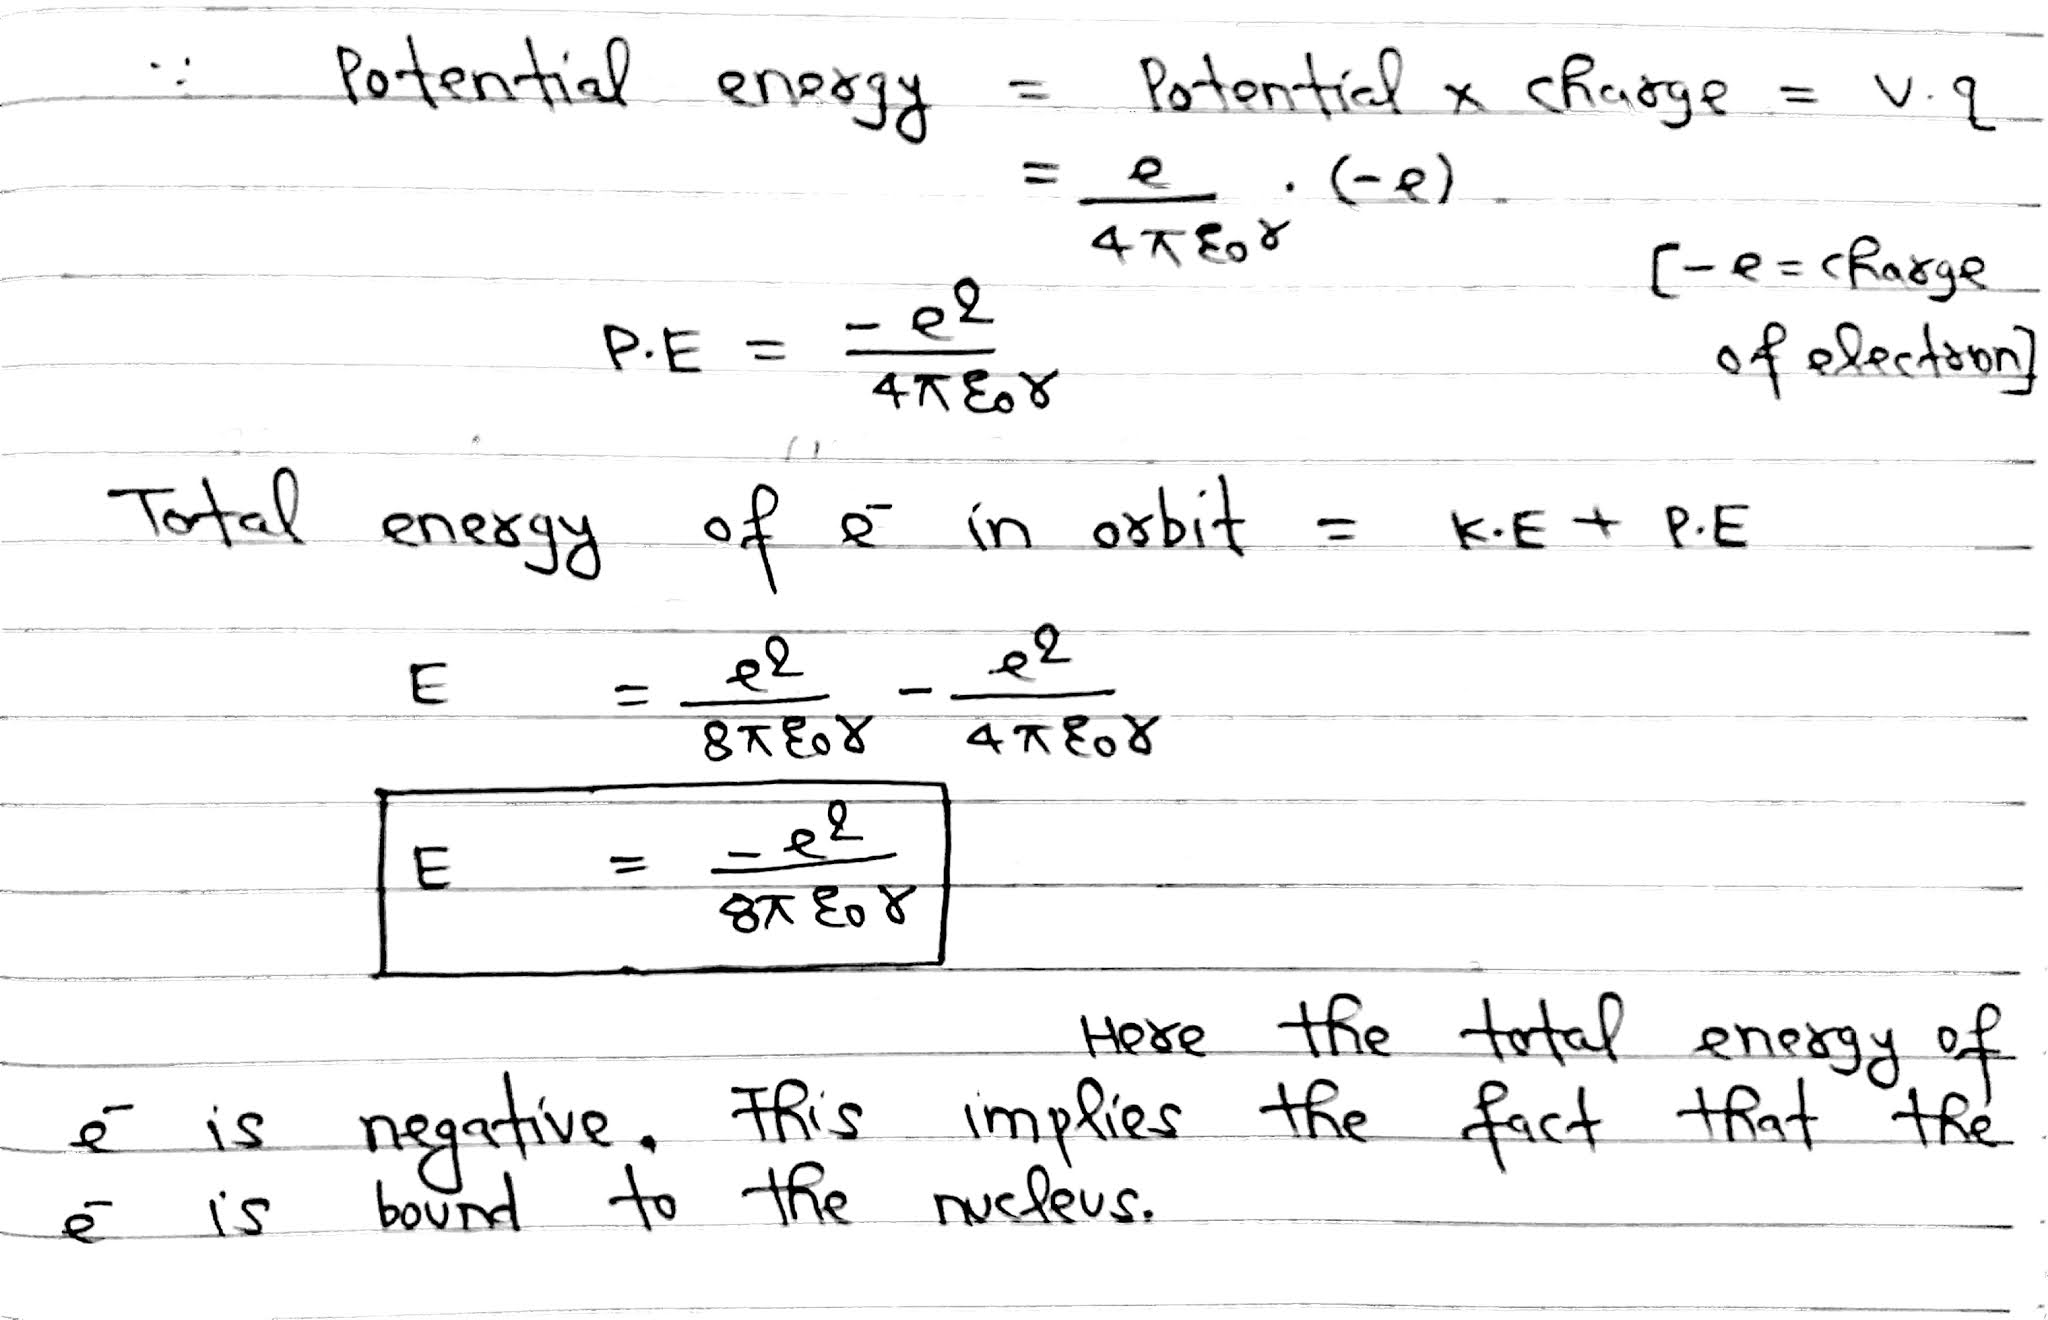 ∵ Potential energy = Potential x charge = V.q
= e/4πε₀r . (-e)
[-e = charge of electron]
P.E = -e²/4πε₀r
Total energy of e⁻ in orbit = K.E + P.E
E = e²/8πε₀r - e²/4πε₀r
E = -e²/8πε₀r
Here the total energy of
e⁻ is negative. This implies the fact that the
e⁻ is bound to the nucleus.